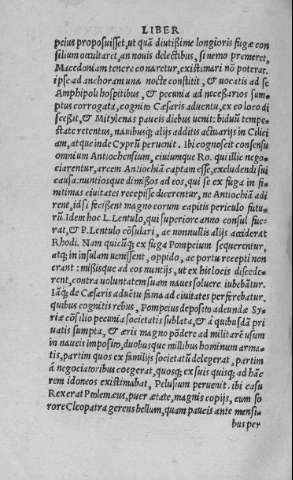 LIBER
peius proposuisset, ut quā diutissime longioris fugæ con
silium occultaret, an nouis delectibus, si nemo premeret,
Macedoniam tenere conaretur, existimari nō poterat.
ipse ad anchoram una nocte constitit, & uocatis ad se
Amphipoli hospitibus, & pecunia ad necessarios sum
ptus corrogata, cognito Cæsaris aduentu, ex eo loco di
scessit, & Mitylenas paucis diebus uenit: biduū tempe
state retentus, nauibusq; alijs additis actuarijs in Cilici
am, atque inde Cyprū peruenit. Ibi cognoscit consensu
omnium Antiochensium, ciuiumque Ro. qui illic nego
ciarentur, arcem Antiochiæ captam esse, excludendi sui
causa: nunciosque dimissos ad eos, qui se ex fuga in fi
nitimas ciuitates recepisse dicerentur, ne Antiochiā adi
rent, id si fecissent magno eorum capitis periculo futu
rū. Idem hoc L. Lentulo, qui superiore anno consul fue
rat, & P. Lentulo cōsulari, ac nonnullis alijs acciderat
Rhodi. Nam quicūq; ex fuga Pompeium sequerentur,
atq; in insulam uenissent, oppido, ac portu recepti non
erant: missisque ad eos nuncijs, ut ex his locis discede
rent, contra uoluntatem suam naues soluere iubebātur.
Iāq; de Cæsaris aduētu fama ad ciuitates perferebatur.
quibus cognitis rebus, Pompeius deposito adeundæ Sy
riæ cōsilio pecunia societatis sublata, & à quibusdā pri
uatis sumpta, & æris magno pōdere ad militarē usum
in naueis imposito, duobusque millibus hominum arma
tis, partim quos ex familijs societatū delegerat, partim
à negociatoribus coegerat, quosq; ex suis quisq; ad hāc
rem idoneos existimabat, Pelusium peruenit. ibi casu
Rex erat Ptolemæus, puer ætate, magnis copijs, cum so
rore Cleopatra gerens bellum, quam paucis ante mensi-
bus per